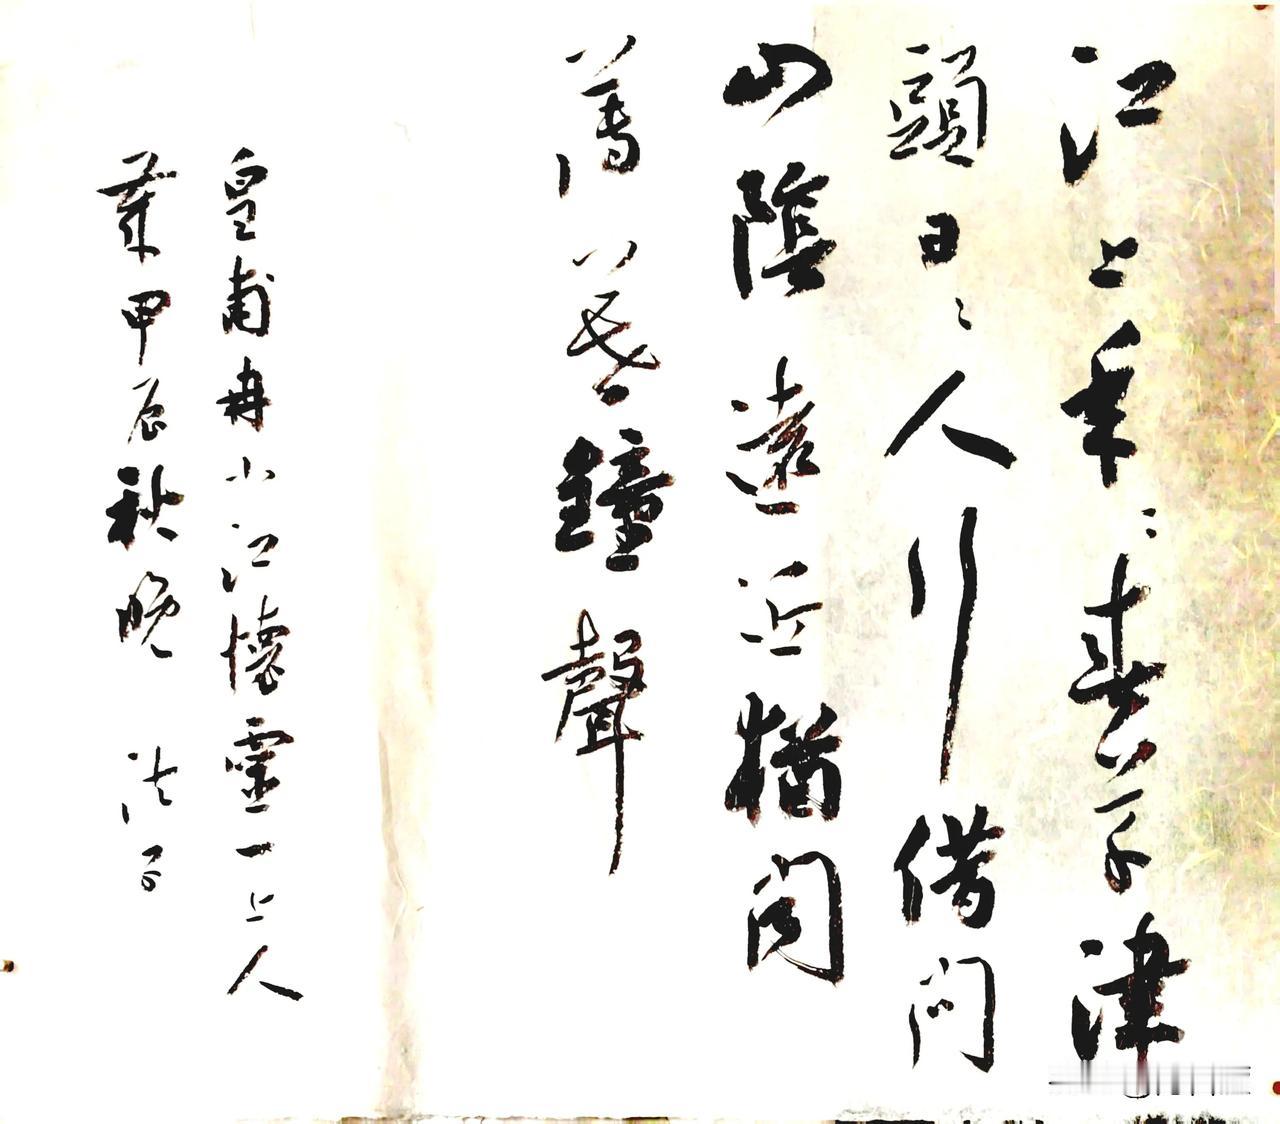 江上年〻春早津
頭日〻人行借問
山陰遠近猶聞
薄暮鐘聲
皇甫冉小江懷靈一上人
葉甲辰秋晚